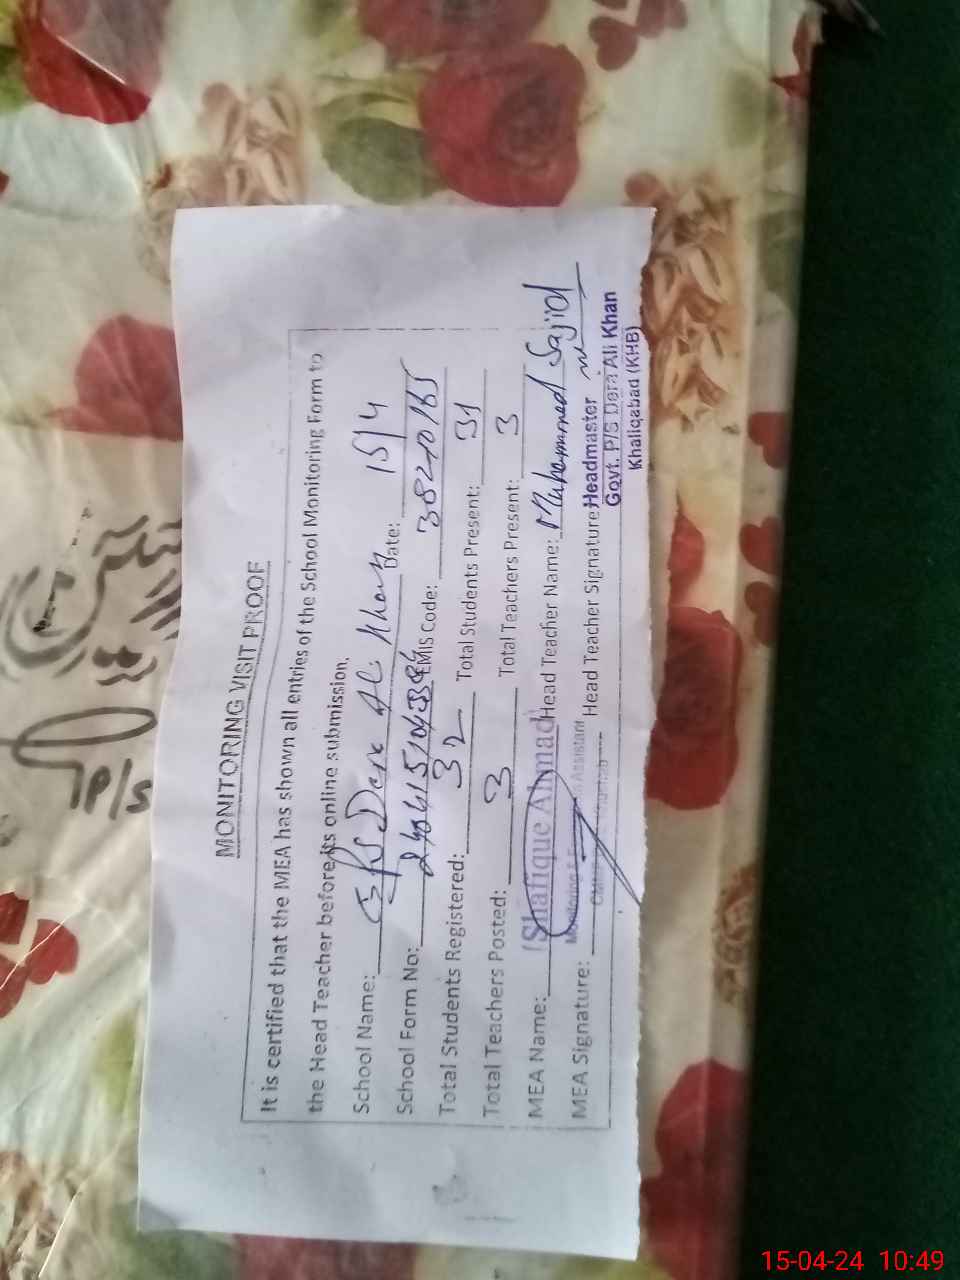 MONITORING VISIT PROOF
It is certified that the MEA has shown all entries of the School Monitoring Form to
the Head Teacher before its online submission.
School Name: GPS Dera Ali Khan Date: 15/4
School Form No: EMIS Code: 38210165
Total Students Registered: 32 Total Students Present: 31
Total Teachers Posted: 3 Total Teachers Present: 3
MEA Name: Shafique Ahmad Head Teacher Name: Muhammed Sajid
Monitoring & Assistant
MEA Signature: Head Teacher Signature: Headmaster
Govt. P/S Dera Ali Khan
Khaliqabad (KHB)
P/S
15-04-24 10:49